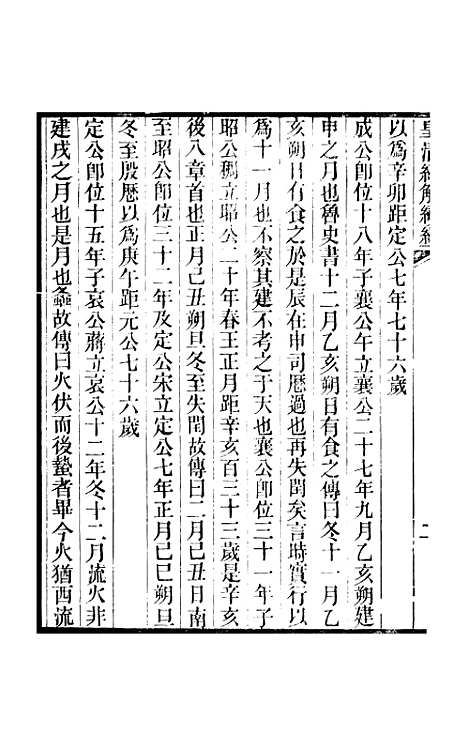 皇清經解續編
二
以為辛卯距定公七年七十六歲
成公卽位十八年子襄公午立襄公二十七年九月乙亥朔建
申之月也魯史書十二月乙亥朔日有食之傳曰冬十一月乙
亥朔日有食之於是辰在申司厯過也再失閏矣言時實行以
為十一月也不察其建不考之于天也襄公卽位三十一年子
昭公稠立昭公二十年春王正月距辛亥百三十三歲是辛亥
後八章首也正月己丑朔旦冬至失閏故傳曰二月己丑日南
至昭公卽位三十二年及定公宋立定公七年正月己巳朔旦
冬至殷厯以為庚午距元公七十六歲
定公卽位十五年子哀公蔣立哀公十二年冬十二月流火非
建戌之月也是月也螽故傳曰火伏而後蟄者畢今火猶西流